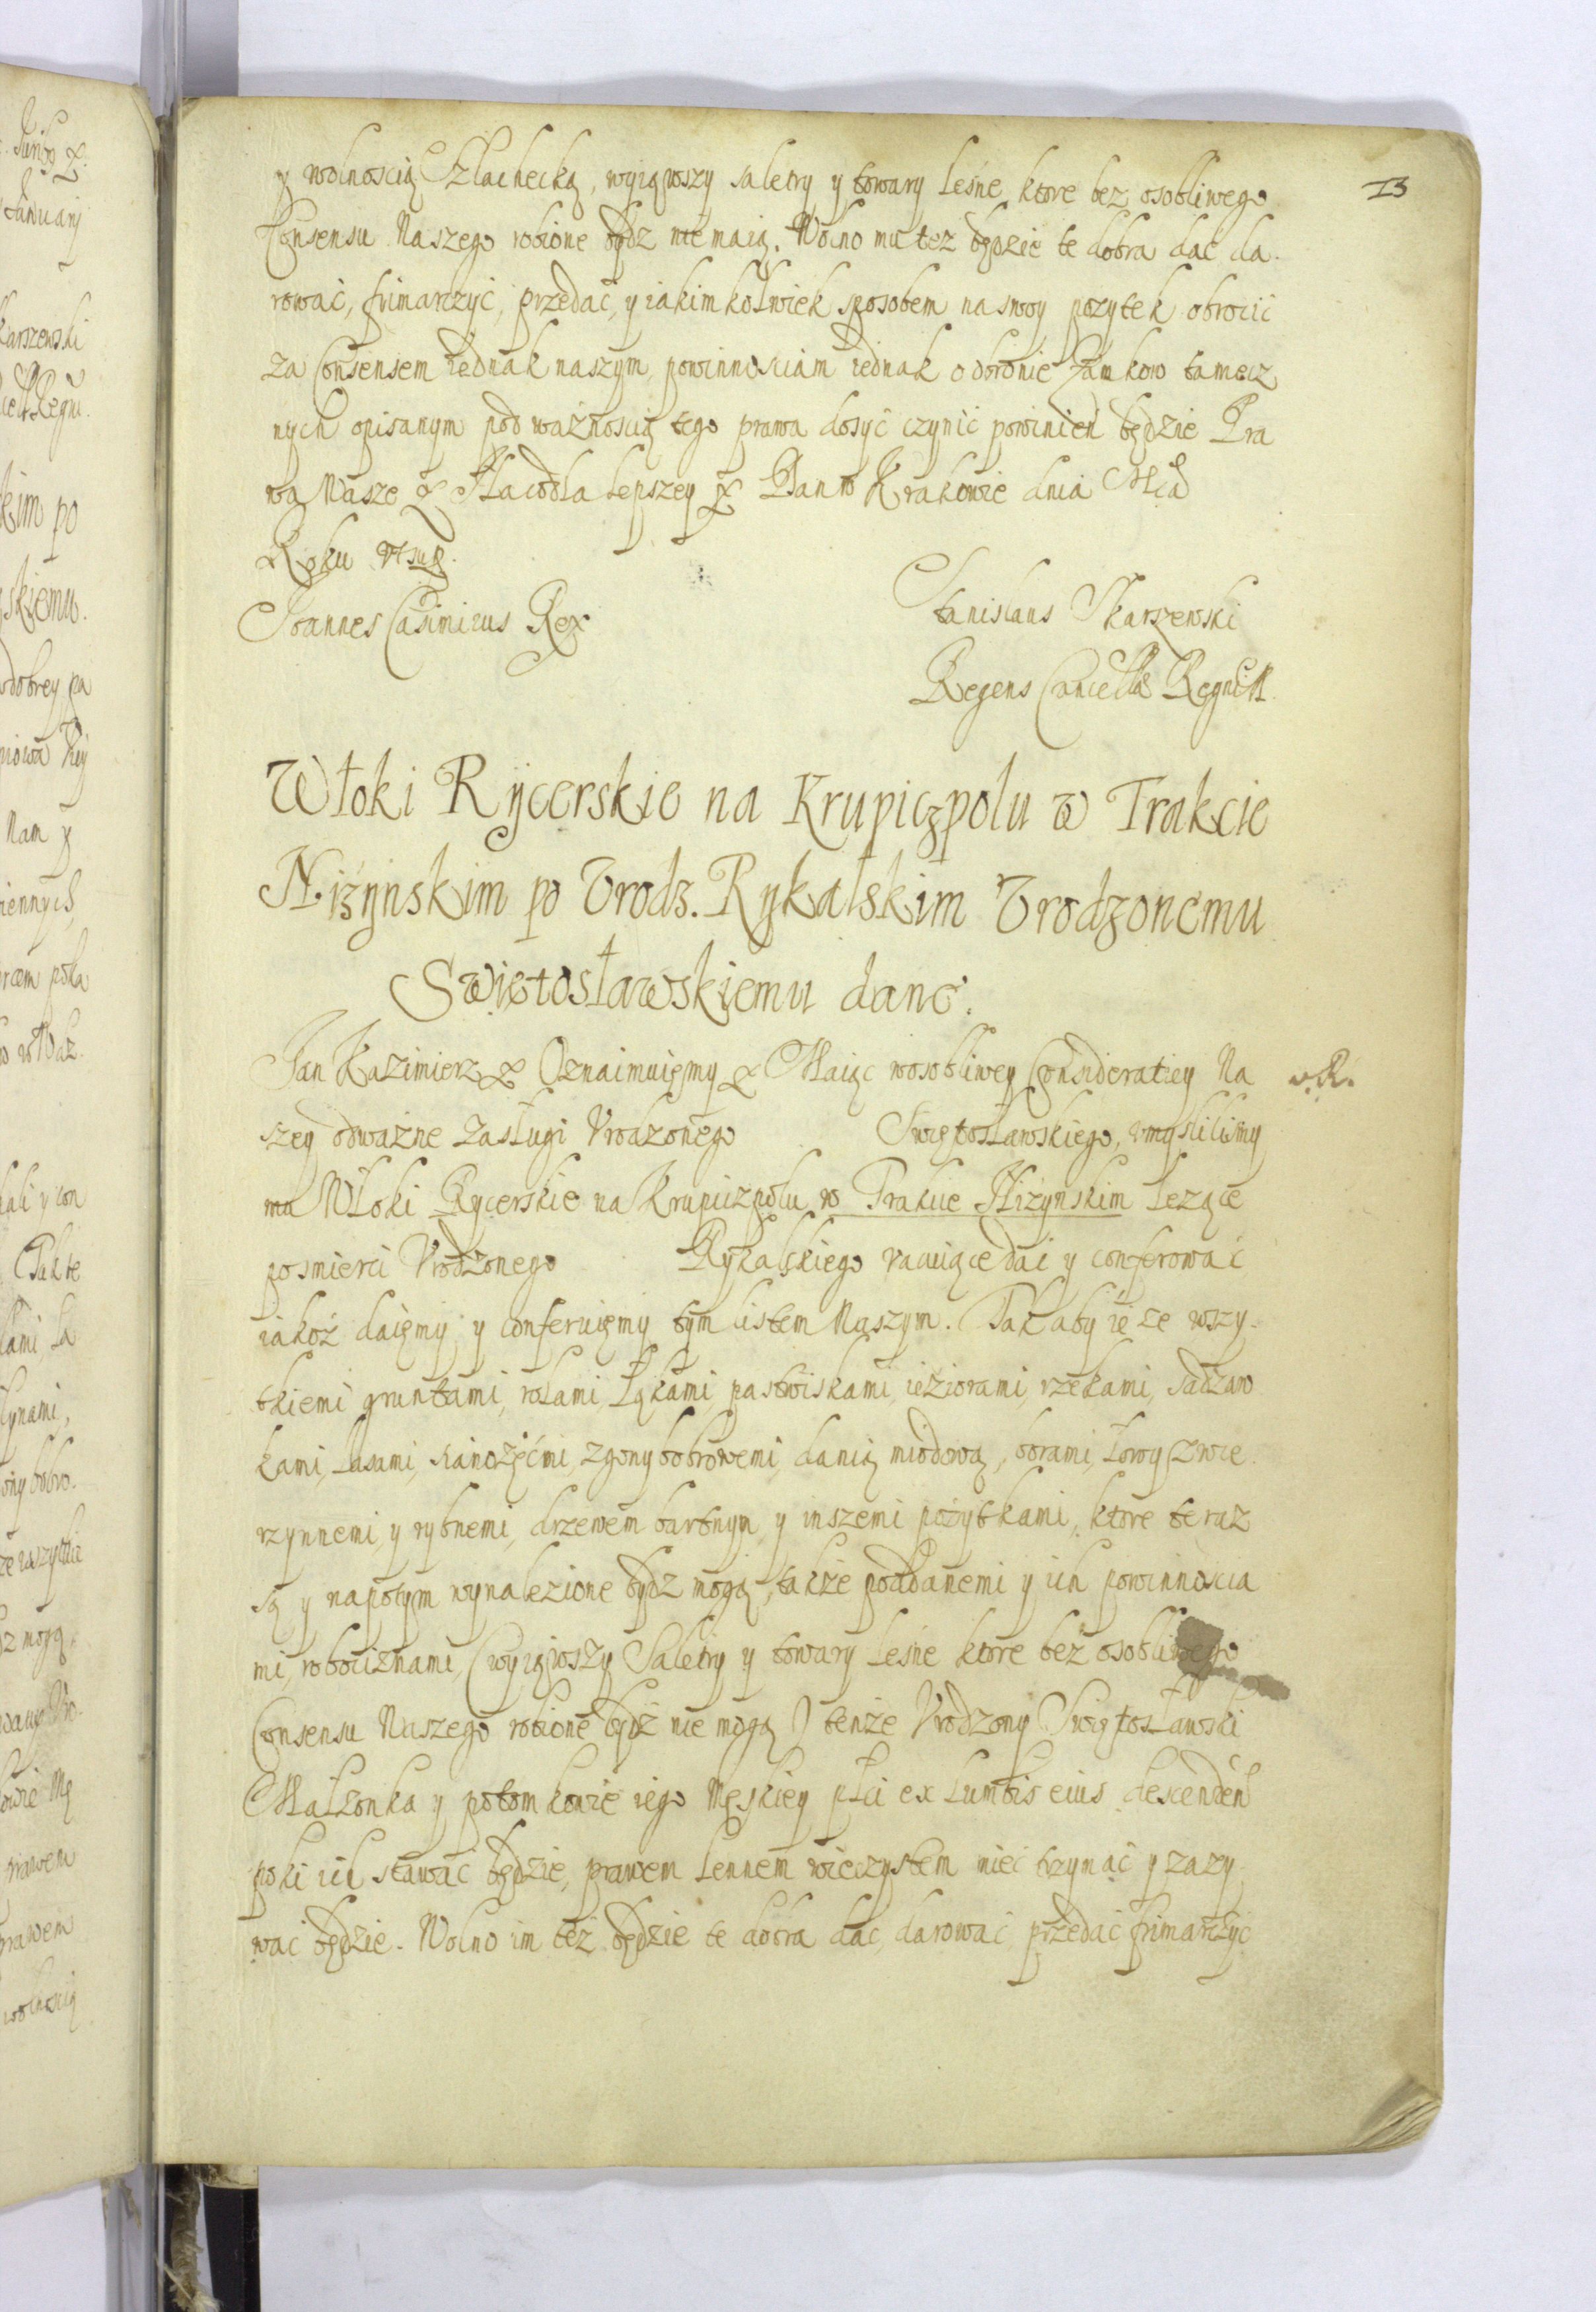 13
y wolnoscią Szlachecką, wyiąwszy saletry y towary leśne, ktore bez osobliwego
Consensu Naszego robione bydz nie maią. Wolno mu tez będzie te dobra dać da-
rować, frimarczyć, przedać, y iakimkolwiek sposobem na swoy pozytek obrocić
za Consensem iednak naszym, powinnosciam iednak o obronie Zamkow tamecz
nych opisanym pod ważnoscią tego prawa dosyć czynić powinien będzie Pra
wa Nasze &c Na co dla lepszey &c Dan w Krakowie dnia Mca
Roku ut sup.
Joannes Casimirus Rex
Stanislaus Skarszewski
Regens Cancellae Regni
Włoki Rycerskie na Krupiczpolu w Trakcie
Niżynskim po Vrodz. Rykalskim Vrodzonemu
Swiętosławskiemu dane.
Jan Kazimierz &c Oznaimuięmy &c Maiąc w osobliwey Consideratiey Na
szey odważne Zasługi Vrodzonego Swiętosławskiego, vmyslilismy
mu Włoki Rycerskie na Krupiczpolu w Trakcie Niżynskim lezące
po smierci Vrodzonego Rykalskiego vacuiące dać y conferować
iakoż daięmy y conferuięmy tym listem Naszym. Tak aby ie ze wszy-
tkiemi gruntami, rolami, Łąkami, pastwiskami, ieziorami, rzekami, Sadzaw
kami, Lasami, sianożęćmi, zgony bobrowemi, danią miodową, borami, Łowy Zwie
rzynnemi, y rybnemi, drzewem bartnym, y inszemi pożytkami, ktore teraz
są y napotym wynalezione bydz mogą, także poddanemi y ich powinnoscia
mi, robociznami, (wyiąwszy Saletry y towary leśne ktore bez osobliwego
Consensu Naszego robione bydź nie mogą) tenże Vrodzony Swiętosławski
Małżonka y potomkowie iego Męskiey płci ex lumbis eius descenden
poki ich stawać będzie, prawem lennem wieczystem mieć trzymać y zazy
wać będzie. Wolno im też będzie te dobra dać, darować, przedać frimarczyć